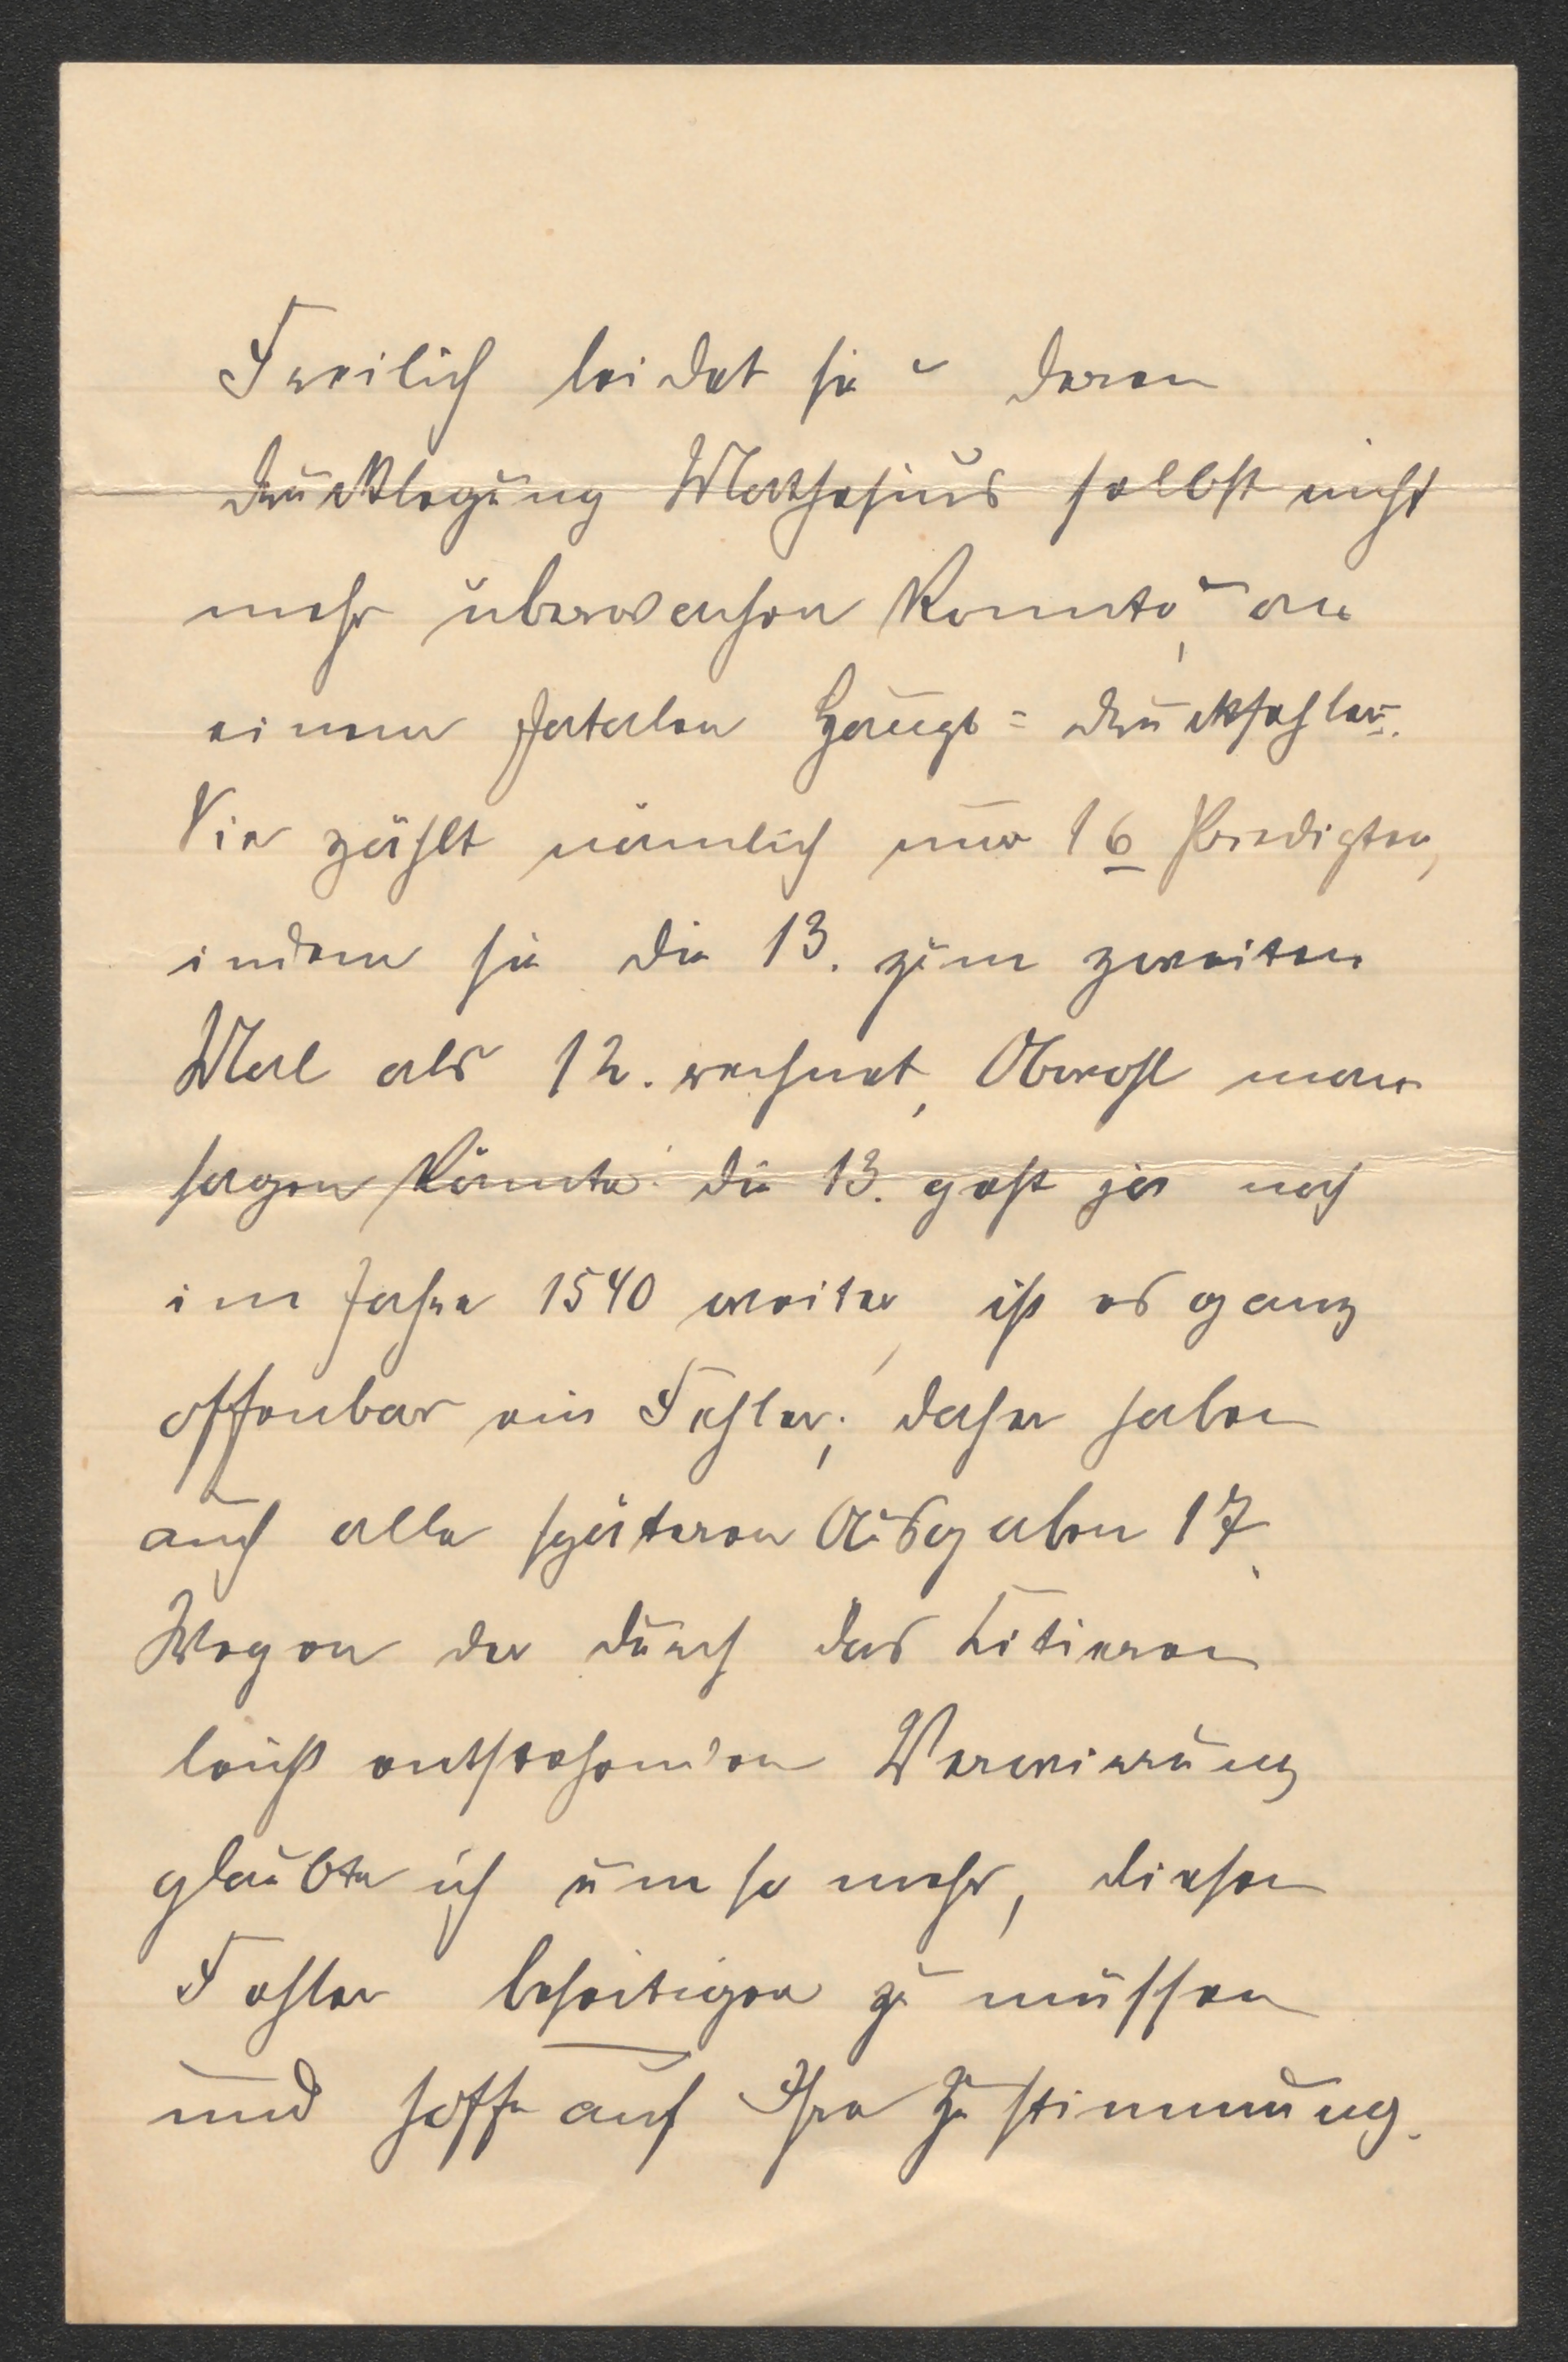 Freilich leidet sie „ deren
Drucklegung Mathesius selbst nicht
mehr überwachen konnte“, an
einem fatalen Haupt=druckfehler.
Sie zählt nämlich nur 16 Predigten,
indem sie die 13. zum zweiten
Mal als 12. rechnet, Obwohl man
sagen könnte: die 13. geht ja noch
im Jahre 1540 weiter, ist es ganz
offenbar ein Fehler; daher haben
auch alle späteren Ausgaben 17.
Wegen der durch das Zitieren
leicht entstehenden Verwirrung
glaubte ich um so mehr, diesen
Fehler beseitigen zu müssen
und hoffe auf Ihre Zustimmung.